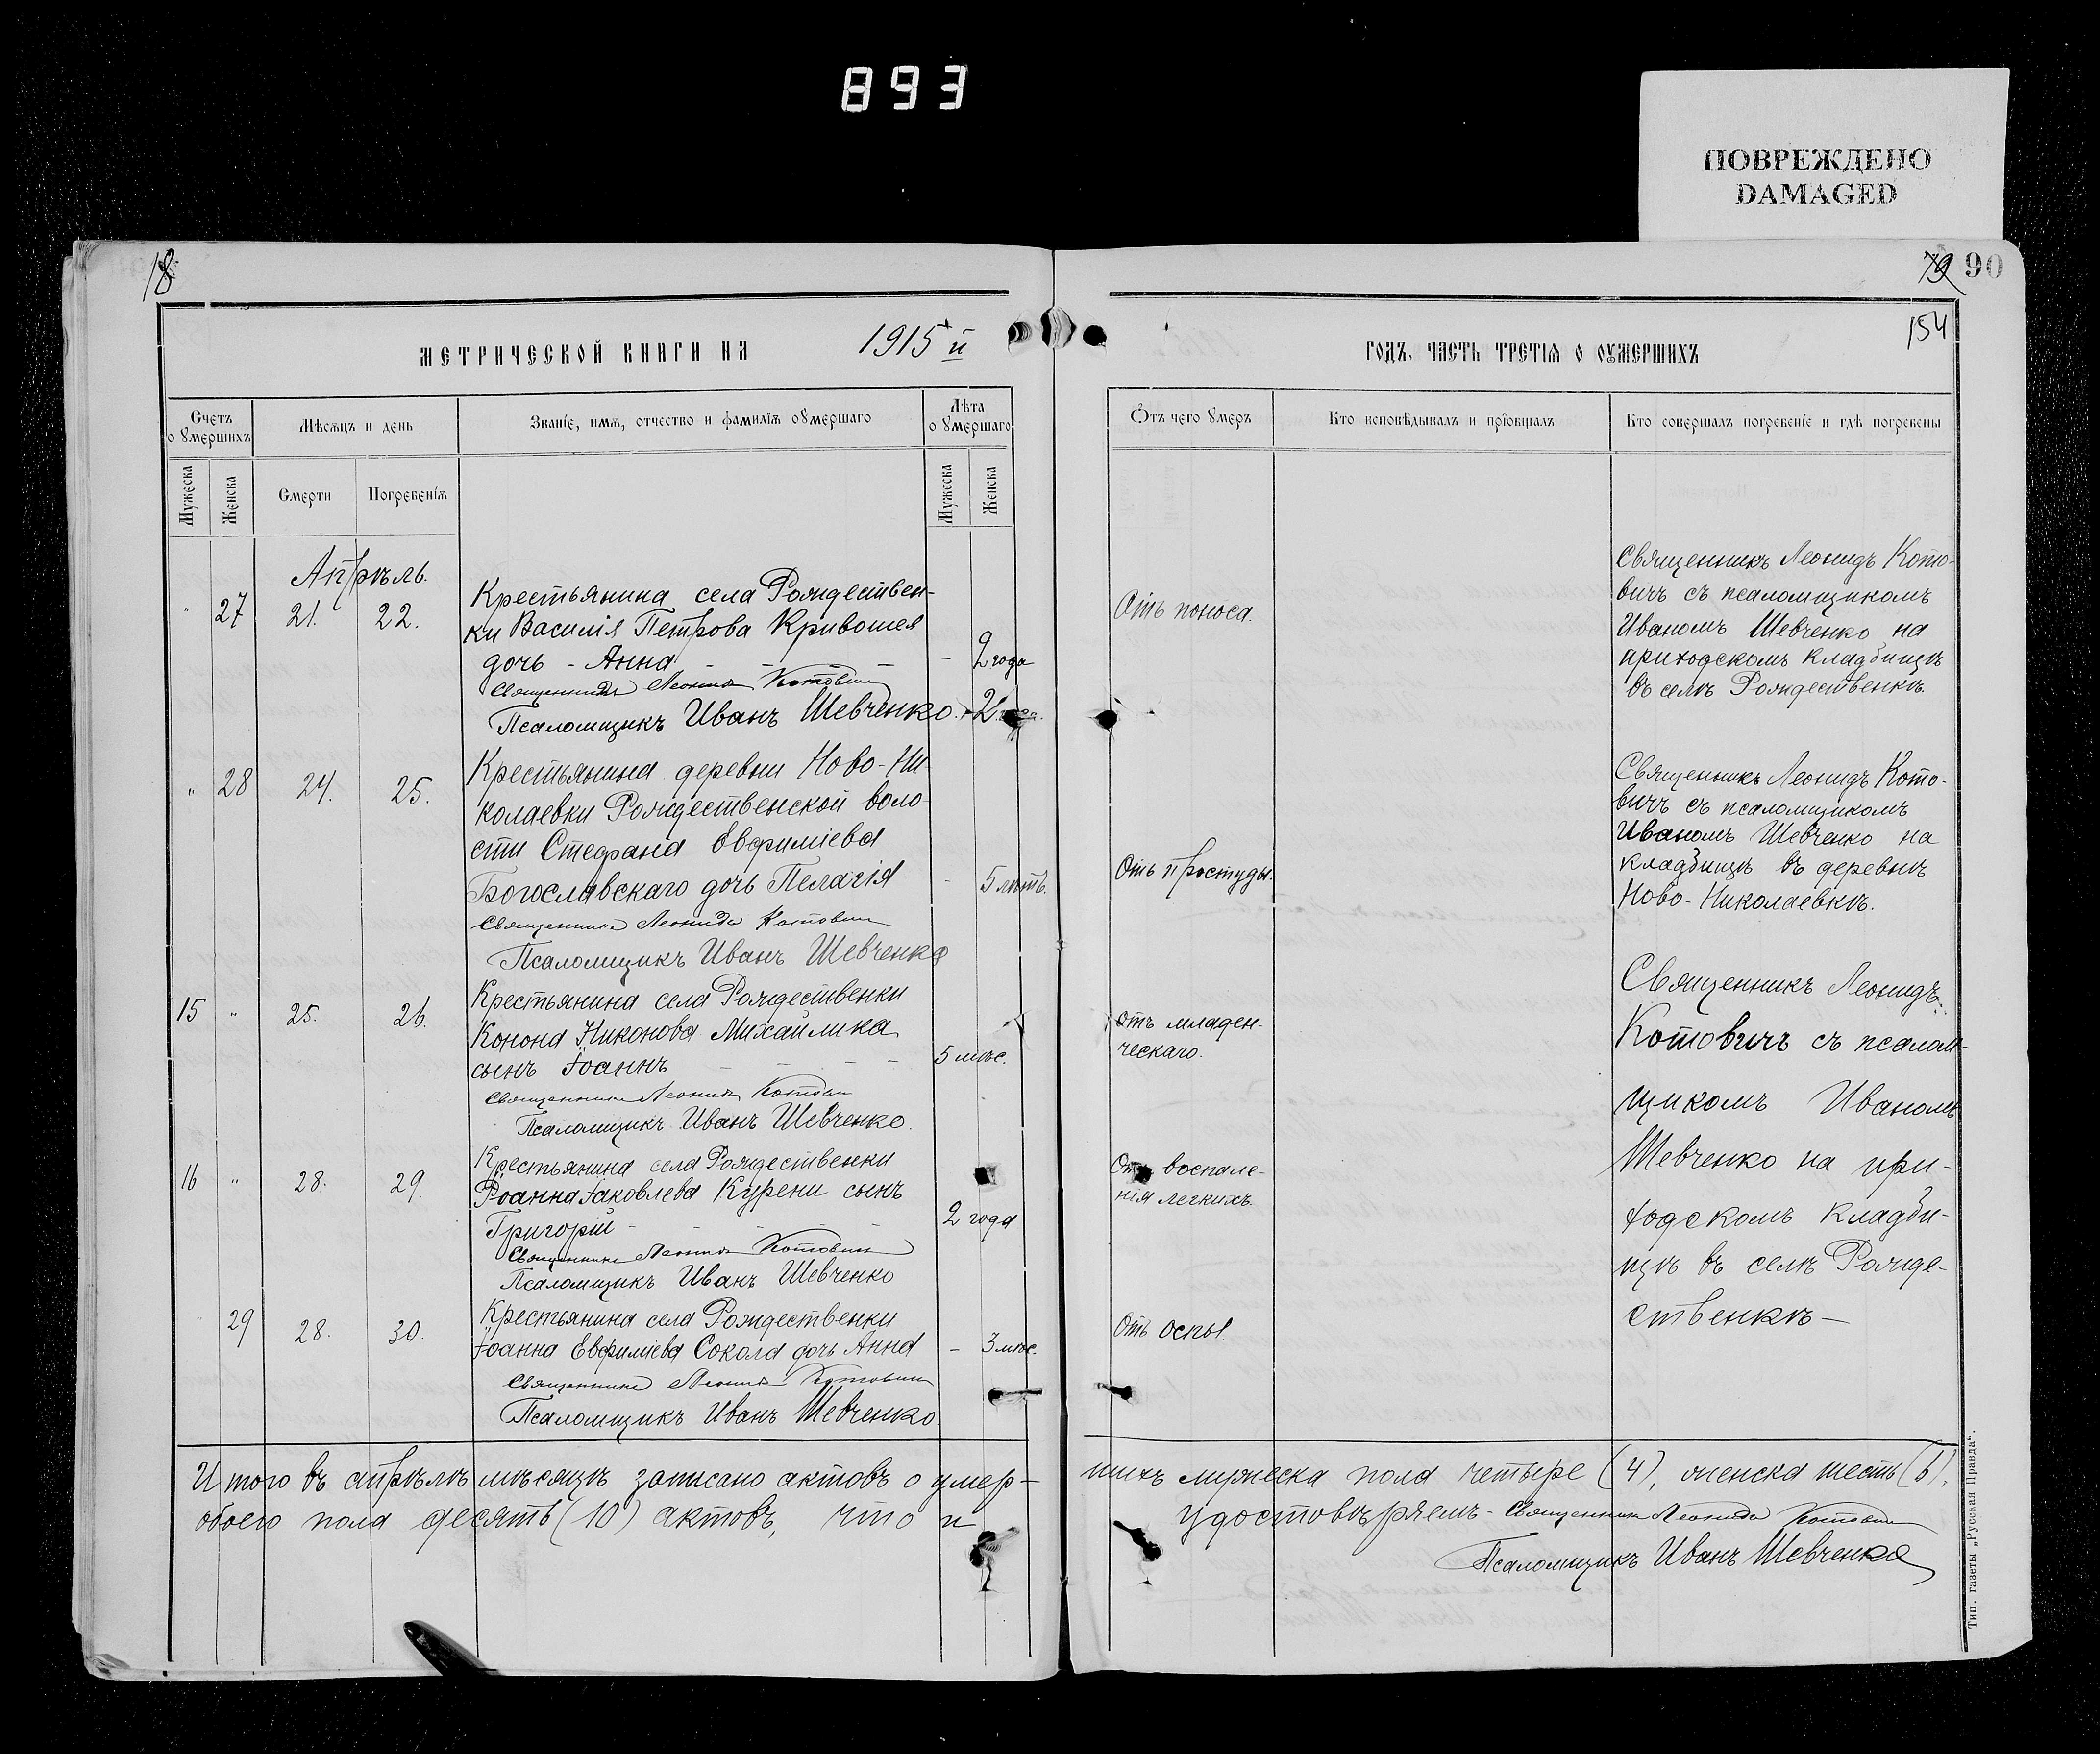 893
ПОВРЕЖДЕНО
DAMAGED
18
79 90
154
МЕТРИЧЕСКОЙ КНИГИ НА 1915й
ГОДЪ, ЧАСТЬ ТРЕТІѦ О ОУМЕРШИХЪ
Счетъ оумершихъ
Мѣсяцъ и день
Званіе, имѧ, отчество и фамилія оумершаго
Лѣта оумершаго
Мужеска
Женска
Смерти
Погребеніѧ
Мужеска
Женска
Ѿтъ чего оумеръ
Кто исповѣдывалъ и пріобщалъ
Кто совершалъ погребеніе и гдѣ погребены
Апрѣль.
" 27 21. 22.
Крестьянина села Рождествен-
ки Василія Петрова Кривошея
дочь - Анна - - - - - 2 года
Священникъ Леонидъ Котовичъ
Псаломщикъ Иванъ Шевченко. 2
Отъ поноса.
Священникъ Леонидъ Кото-
вичъ съ псаломщикомъ
Иваномъ Шевченко на
приходскомъ кладбищѣ
въ селѣ Рождественкѣ.
" 28 24. 25.
Крестьянина деревни Ново-Ни-
колаевки Рождественской воло-
сти Стефана Евфиміева
Богославскаго дочь Пелагія - 5 лѣтъ.
Священникъ Леонидъ Котовичъ
Псаломщикъ Иванъ Шевченко
Отъ простуды.
Священникъ Леонидъ Кото-
вичъ съ псаломщикомъ
Иваномъ Шевченко на
кладбищѣ въ деревнѣ
Ново-Николаевкѣ.
15 " 25. 26.
Крестьянина села Рождественки
Конона Никонова Михайлика
сынъ Іоаннъ - - - - 5 мѣс.
Священникъ Леонидъ Котовичъ
Псаломщикъ Иванъ Шевченко.
Отъ младен-
ческаго.
Священникъ Леонидъ
Котовичъ съ псалом-
щикомъ Иваномъ
Шевченко на при-
ходскомъ кладби-
щѣ въ селѣ Рожде-
ственкѣ —
16 " 28. 29.
Крестьянина села Рождественки
Іоанна Іаковлева Курени сынъ
Григорій - - - - 2 года
Священникъ Леонидъ Котовичъ
Псаломщикъ Иванъ Шевченко
Отъ воспале-
нія легкихъ.
" 29 28. 30.
Крестьянина села Рождественки
Іоанна Евфиміева Сокола дочь Анна - 3 мѣс.
Священникъ Леонидъ Котовичъ
Псаломщикъ Иванъ Шевченко.
Отъ оспы.
Итого въ апрѣлѣ мѣсяцѣ записано актовъ о умер-
шихъ мужеска пола четыре (4), женска шесть (6),
обоего пола десять (10) актовъ, что и
удостовѣряемъ - Священникъ Леонидъ Котовичъ
Псаломщикъ Иванъ Шевченко
Тип. газеты „Русская Правда“.